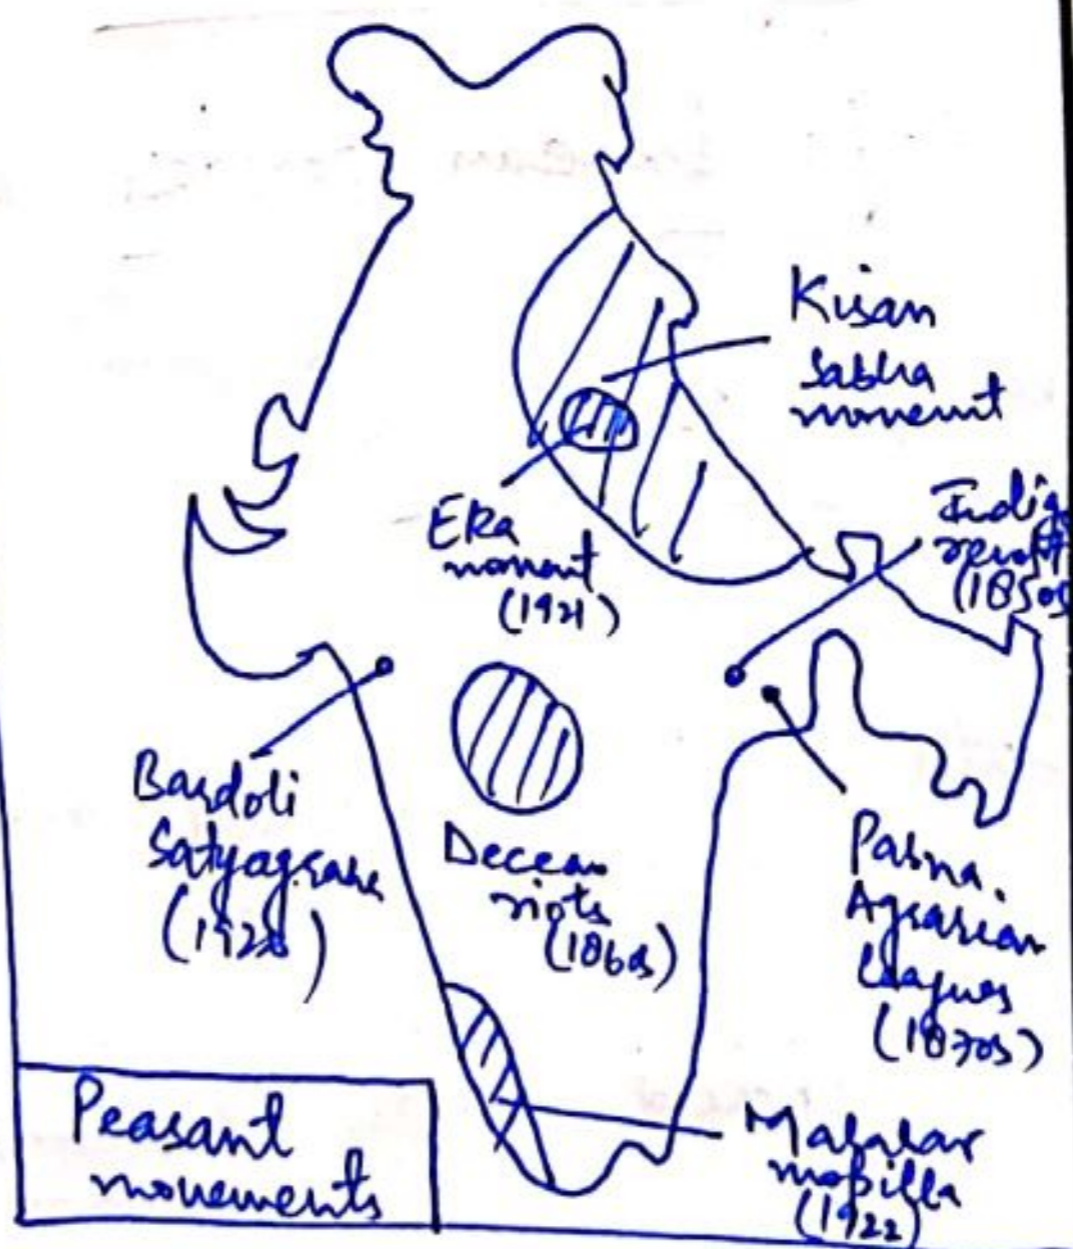 Kisan
Sabha
movement
Indigo
revolt
(1850s
Eka
movement
(1921)
Bardoli
Satyagraha
(1928)
Deccan
riots
(1860s)
Pabna
Agrarian
Leagues
(1870s)
Malabar
mopilla
(1922)
Peasant
movements